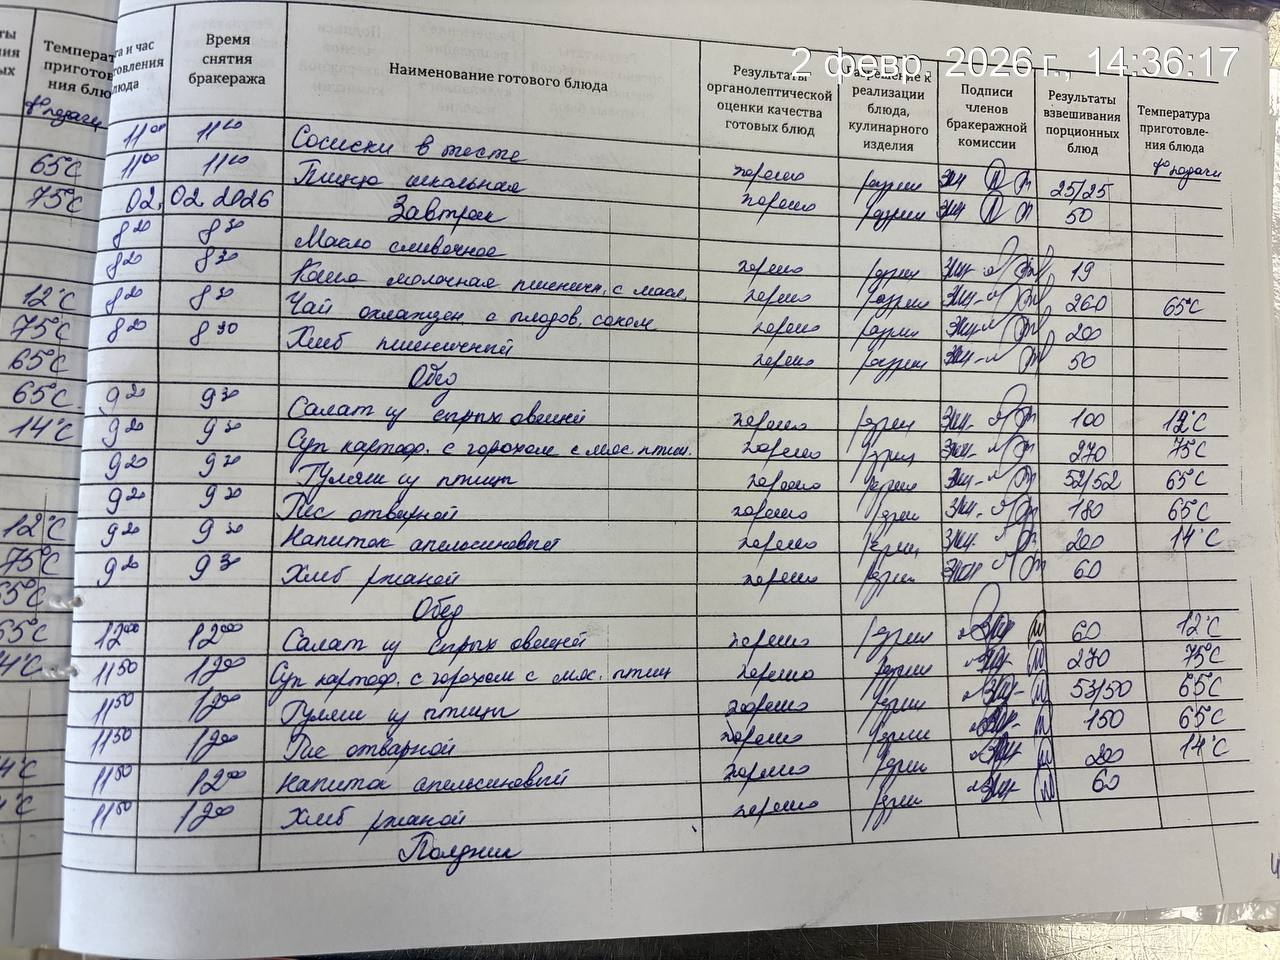 2 февр. 2026 г., 14:36:17
Температ
приготов
ния блю
t° подачи
65°С
75°С
12°С
75°С
65°С
65°С
14°С
12°С
75°С
65°С
65°С
4°С
4°С
4°С
та и час
товления
блюда
Время снятия бракеража
Наименование готового блюда
Результаты органолептической оценки качества готовых блюд
Разрешение к реализации блюда, кулинарного изделия
Подписи членов бракеражной комиссии
Результаты взвешивания порционных блюд
Температура приготовле-ния блюда
t° подачи
11 00 11 10 Сосиски в тесте хорошо разреш 25/25
11 00 11 10 Пицца школьная хорошо разреш 50
02.02.2026 Завтрак
8 20 8 30 Масло сливочное хорошо разреш 19
8 20 8 30 Каша молочная пшеничн. с масл. хорошо разреш 260 65°С
8 20 8 30 Чай охлажден. с плодов. соком хорошо разреш 200
8 20 8 30 Хлеб пшеничный хорошо разреш 50
Обед
9 20 9 30 Салат из сырых овощей хорошо разреш 100 12°С
9 20 9 30 Суп картоф. с горохом с мяс. птиц. хорошо разреш 270 75°С
9 20 9 30 Гуляш из птицы хорошо разреш 52/52 65°С
9 20 9 30 Рис отварной хорошо разреш 180 65°С
9 20 9 30 Напиток апельсиновый хорошо разреш 200 14°С
9 20 9 30 Хлеб ржаной хорошо разреш 60
Обед
12 00 12 00 Салат из сырых овощей хорошо разреш 60 12°С
11 50 12 00 Суп картоф. с горохом с мяс. птиц хорошо разреш 270 75°С
11 50 12 00 Гуляш из птицы хорошо разреш 53/50 65°С
11 50 12 00 Рис отварной хорошо разреш 150 65°С
11 50 12 00 Напиток апельсиновый хорошо разреш 200 14°С
11 50 12 00 Хлеб ржаной хорошо разреш 60
Полдник